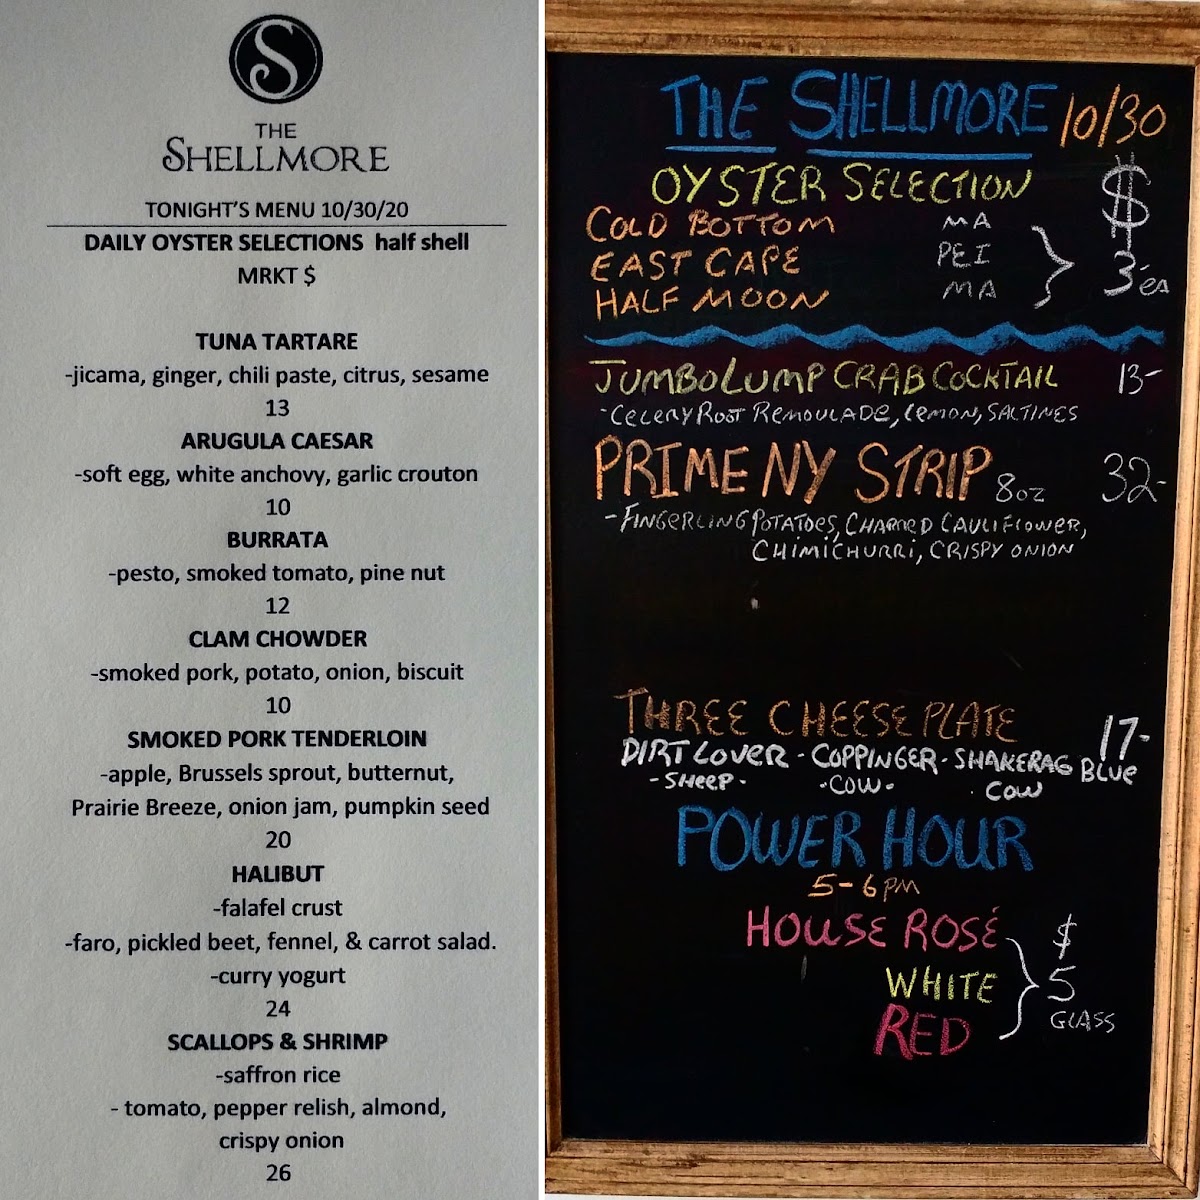 S
THE
SHELLMORE
TONIGHT'S MENU 10/30/20
DAILY OYSTER SELECTIONS half shell
MRKT $
TUNA TARTARE
-jicama, ginger, chili paste, citrus, sesame
13
ARUGULA CAESAR
-soft egg, white anchovy, garlic crouton
10
BURRATA
-pesto, smoked tomato, pine nut
12
CLAM CHOWDER
-smoked pork, potato, onion, biscuit
10
SMOKED PORK TENDERLOIN
-apple, Brussels sprout, butternut,
Prairie Breeze, onion jam, pumpkin seed
20
HALIBUT
-falafel crust
-faro, pickled beet, fennel, & carrot salad.
-curry yogurt
24
SCALLOPS & SHRIMP
-saffron rice
- tomato, pepper relish, almond,
crispy onion
26
THE SHELLMORE 10/30
OYSTER SELECTION $
COLD BOTTOM MA
EAST CAPE PEI 3-ea
HALF MOON MA
JUMBO LUMP CRAB COCKTAIL 13-
-CELERY ROOT REMOULADE, LEMON, SALTINES
PRIME NY STRIP 8oz 32-
-FINGERLING POTATOES, CHARRED CAULIFLOWER,
CHIMICHURRI, CRISPY ONION
THREE CHEESE PLATE 17-
DIRT LOVER - COPPINGER - SHAKERAG BLUE
-SHEEP- -COW- COW
POWER HOUR
5-6PM
HOUSE ROSÉ $
WHITE 5
RED GLASS